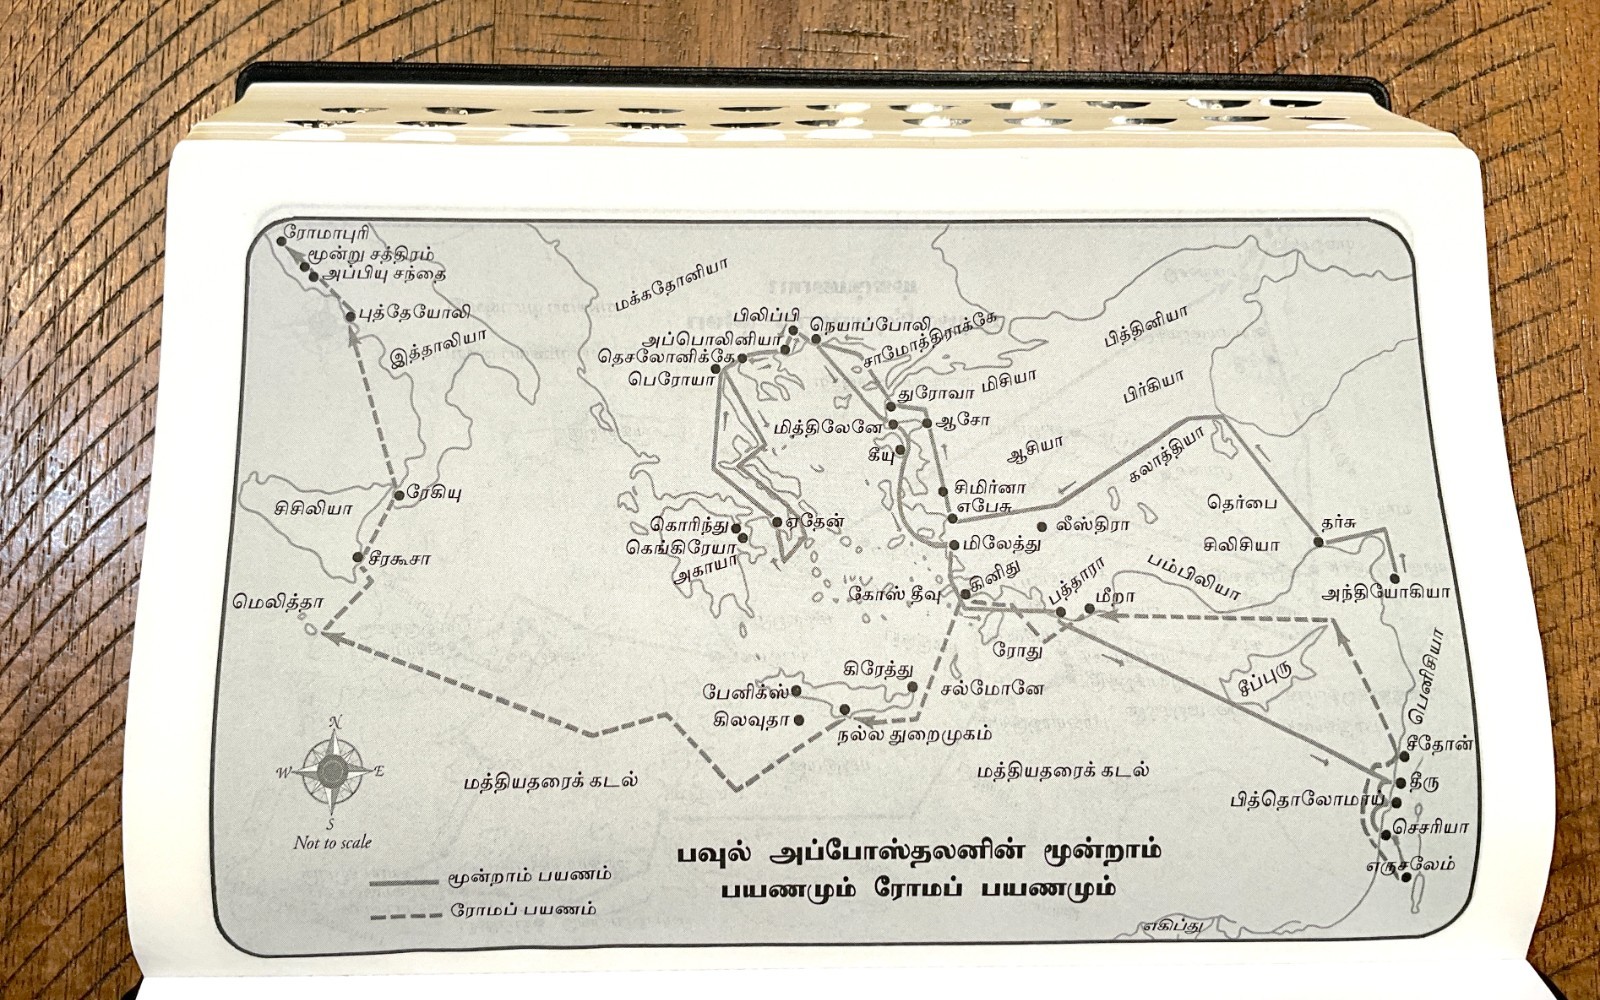 ரோமாபுரி
மூன்று சத்திரம்
அப்பியு சந்தை
புத்தேயோலி
இத்தாலியா
மக்கதோனியா
பிலிப்பி
நெயாப்போலி
அப்பொலினியா
சாமோத்திராக்கே
தெசலோனிக்கே
பெரோயா
பித்தினியா
துரோவா
மிசியா
பிர்கியா
மித்திலேனே
ஆசோ
கீயு
ஆசியா
கலாத்தியா
ரேகியு
சிசிலியா
சிமிர்னா
எபேசு
தெர்பை
கொரிந்து
ஏதேன்
லீஸ்திரா
தர்சு
கெங்கிரேயா
மிலேத்து
சிலிசியா
சீரகூசா
அகாயா
கினிது
பத்தாரா
பம்பிலியா
மெலித்தா
கோஸ் தீவு
மீறா
அந்தியோகியா
ரோது
கிரேத்து
சீப்புரு
பெனிசியா
பேனிக்ஸ்
சல்மோனே
கிலவுதா
நல்ல துறைமுகம்
சீதோன்
N
W E
S
Not to scale
மத்தியதரைக் கடல்
மத்தியதரைக் கடல்
தீரு
பித்தொலோமாய்
செசரியா
எருசலேம்
பவுல் அப்போஸ்தலனின் மூன்றாம்
பயணமும் ரோமப் பயணமும்
மூன்றாம் பயணம்
ரோமப் பயணம்
எகிப்து